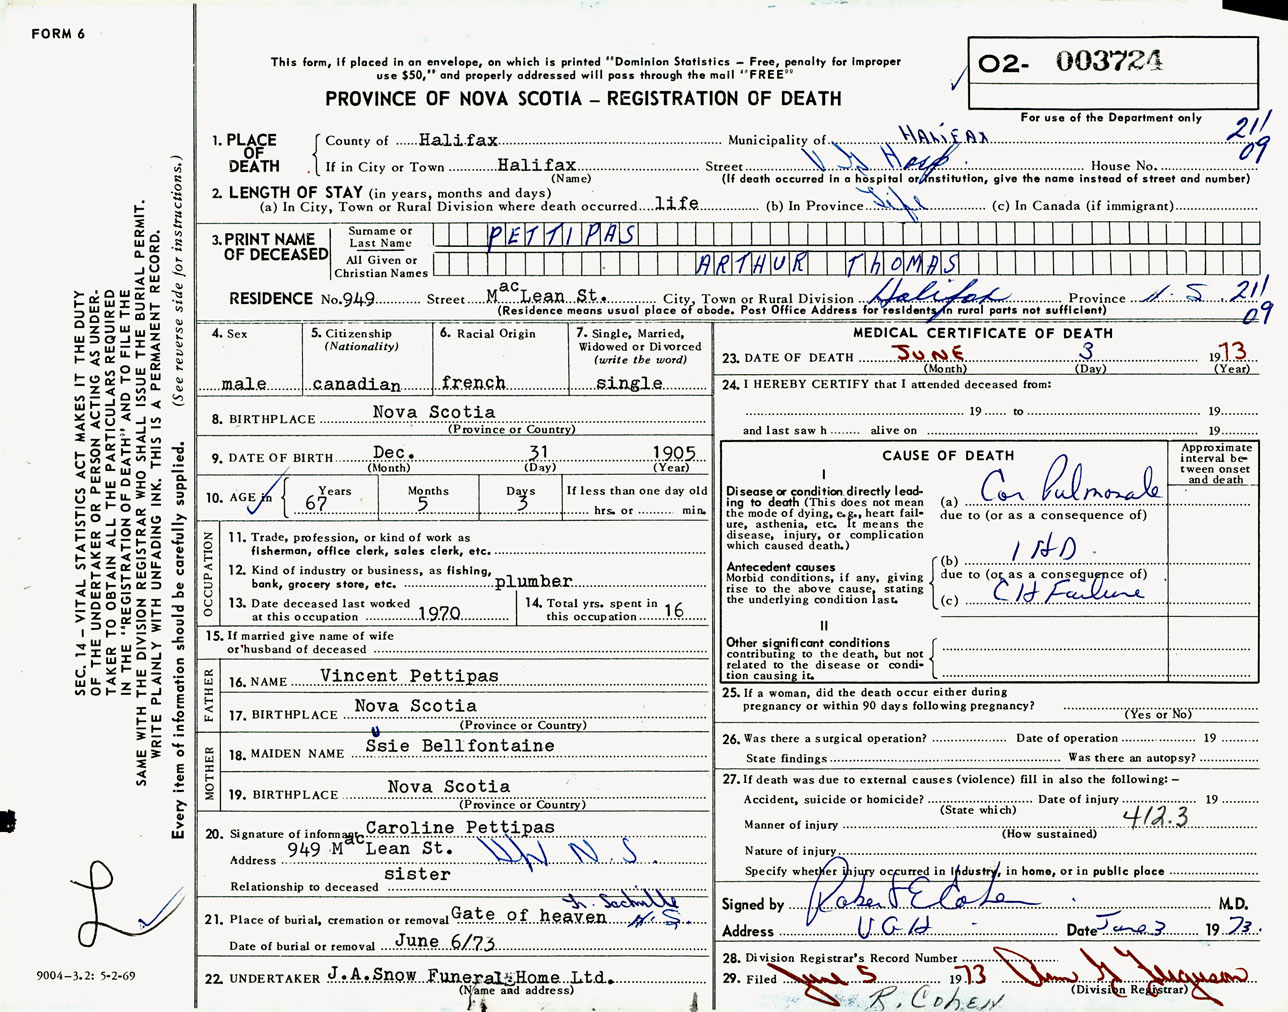 FORM 6
This form, if placed in an envelope, on which is printed "Dominion Statistics – Free, penalty for improper
use $50," and properly addressed will pass through the mail "FREE"
PROVINCE OF NOVA SCOTIA – REGISTRATION OF DEATH
O2- 003724
For use of the Department only
211
09
1. PLACE OF DEATH
County of Halifax Municipality of HALIFAX
If in City or Town Halifax Street V G Hosp. House No.
(Name) (If death occurred in a hospital or institution, give the name instead of street and number)
2. LENGTH OF STAY (in years, months and days)
(a) In City, Town or Rural Division where death occurred life (b) In Province Life (c) In Canada (if immigrant)
3. PRINT NAME OF DECEASED
Surname or Last Name PETTIPAS
All Given or Christian Names ARTHUR THOMAS
RESIDENCE No. 949 Street MacLean St. City, Town or Rural Division Halifax Province N.S. 211
09
(Residence means usual place of abode. Post Office Address for residents in rural parts not sufficient)
4. Sex
male
5. Citizenship
(Nationality)
canadian
6. Racial Origin
french
7. Single, Married,
Widowed or Divorced
(write the word)
single
8. BIRTHPLACE Nova Scotia
(Province or Country)
9. DATE OF BIRTH Dec. 31 1905
(Month) (Day) (Year)
10. AGE in Years Months Days If less than one day old
67 5 3 hrs. or min.
OCCUPATION
11. Trade, profession, or kind of work as
fisherman, office clerk, sales clerk, etc.
12. Kind of industry or business, as fishing,
bank, grocery store, etc. plumber
13. Date deceased last worked
at this occupation 1970
14. Total yrs. spent in
this occupation 16
15. If married give name of wife
or husband of deceased
FATHER
16. NAME Vincent Pettipas
17. BIRTHPLACE Nova Scotia
(Province or Country)
MOTHER
18. MAIDEN NAME Susie Bellfontaine
19. BIRTHPLACE Nova Scotia
(Province or Country)
20. Signature of informant Caroline Pettipas
Address 949 MacLean St. N.S.
Relationship to deceased sister
21. Place of burial, cremation or removal Gate of heaven N.S.
Date of burial or removal June 6/73
22. UNDERTAKER J.A.Snow Funeral Home Ltd.
(Name and address)
MEDICAL CERTIFICATE OF DEATH
23. DATE OF DEATH JUNE 3 1973
(Month) (Day) (Year)
24. I HEREBY CERTIFY that I attended deceased from:
19 to 19
and last saw h alive on 19
CAUSE OF DEATH
Approximate
interval be-
tween onset
and death
I
Disease or condition directly lead-
ing to death (This does not mean
the mode of dying, e.g., heart fail-
ure, asthenia, etc. It means the
disease, injury, or complication
which caused death.)
(a) Cor Pulmonale
due to (or as a consequence of)
Antecedent causes
Morbid conditions, if any, giving
rise to the above cause, stating
the underlying condition last.
(b) IHD
due to (or as a consequence of)
(c) CH Failure
II
Other significant conditions
contributing to the death, but not
related to the disease or condi-
tion causing it.
25. If a woman, did the death occur either during
pregnancy or within 90 days following pregnancy?
(Yes or No)
26. Was there a surgical operation? Date of operation 19
State findings Was there an autopsy?
27. If death was due to external causes (violence) fill in also the following: –
Accident, suicide or homicide? Date of injury 19
(State which)
Manner of injury 412.3
(How sustained)
Nature of injury
Specify whether injury occurred in Industry, in home, or in public place
Signed by Robert E Cohen M.D.
Address VGH Date June 3 1973.
28. Division Registrar's Record Number
29. Filed June 5 1973 Ferguson
(Division Registrar)
R. COHEN
SEC. 14 – VITAL STATISTICS ACT MAKES IT THE DUTY
OF THE UNDERTAKER OR PERSON ACTING AS UNDER-
TAKER TO OBTAIN ALL THE PARTICULARS REQUIRED
IN THE "REGISTRATION OF DEATH" AND TO FILE THE
SAME WITH THE DIVISION REGISTRAR WHO SHALL ISSUE THE BURIAL PERMIT.
WRITE PLAINLY WITH UNFADING INK. THIS IS A PERMANENT RECORD.
Every item of information should be carefully supplied. (See reverse side for instructions.)
9004-3.2: 5-2-69